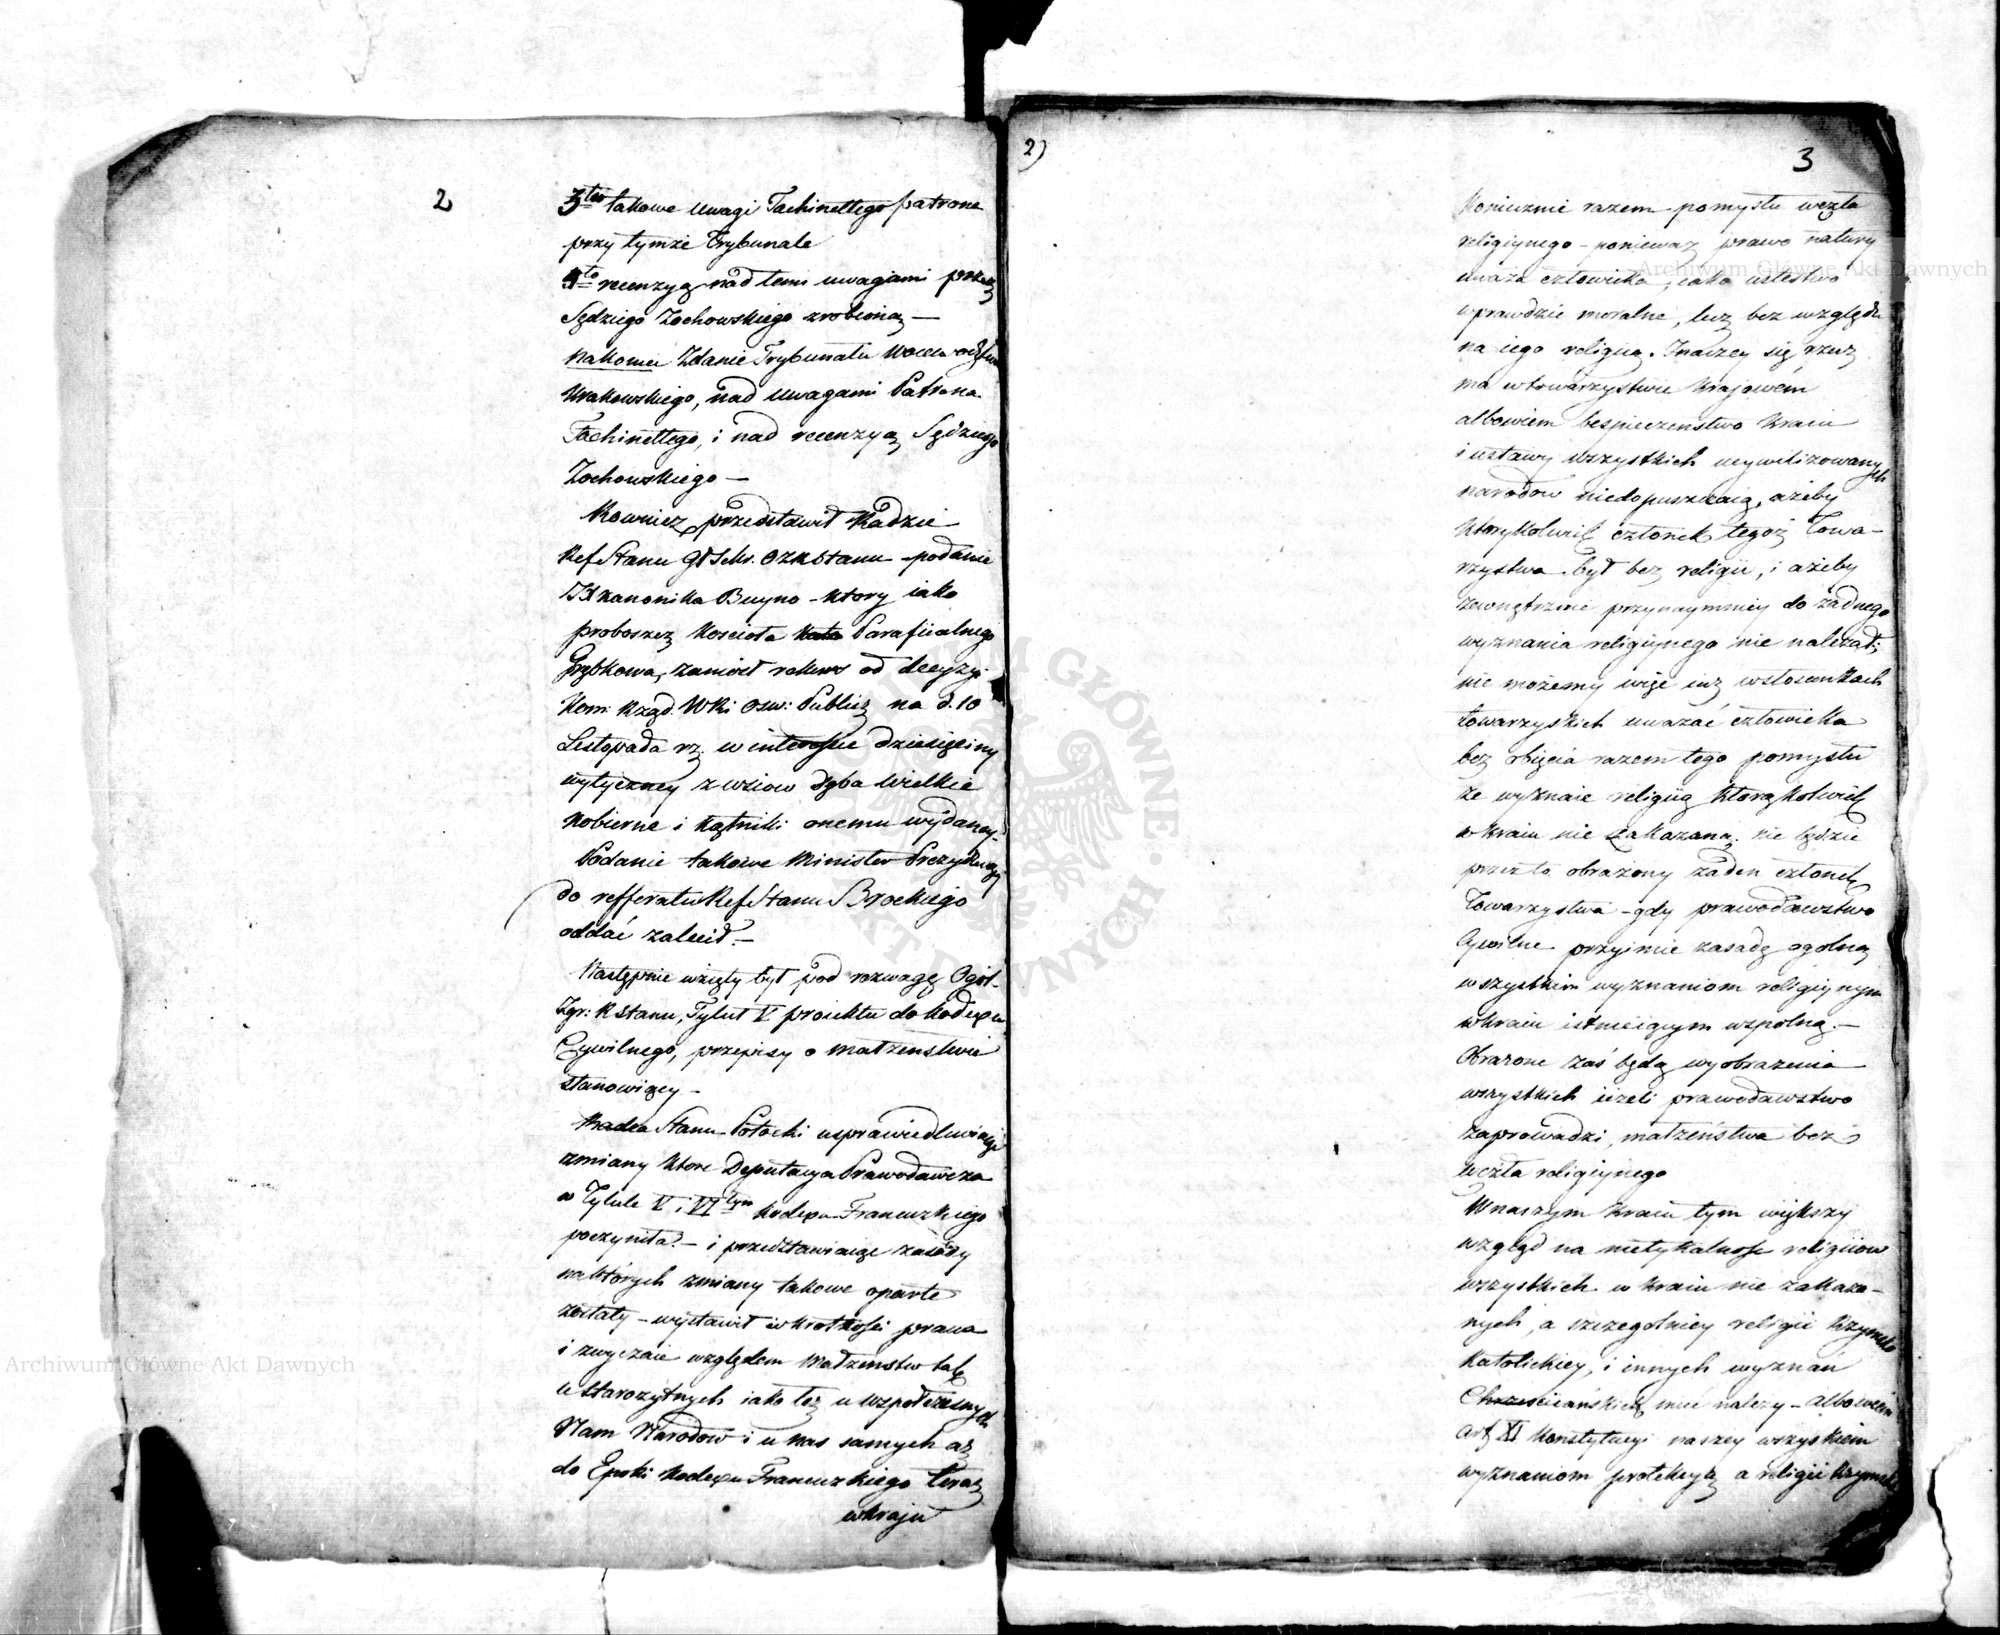 2
3tio takowe uwagi Tachinellego patrona
przy tymże Trybunale
4to recenzyą nad temi uwagami przez
Sędziego Zochowskiego zrobioną —
nakoniec Zdanie Trybunału Woiewodztwa
Krakowskiego, nad uwagami Patrona
Tachinellego, i nad recenzyą Sędziego
Zochowskiego —
Rownież przedstawił Radzie
Ref Stanu podanie
JX kanonika Buyno – ktory iako
proboszcz Kościoła Parafiialnego
zaniosł rekurs od decyzyi
Kom: Rząd. WRi Osw: Publicz na d. 10
Listopada rz. w interessie dziesięciny
wytyczney z wsiow Dęba wielkie
Kobierne i Kątniki onemu wydaney.
Podanie takowe Minister Prezyduiący
do refferatu Ref Stanu Brockiego
oddać zalecił. —
Następnie wzięty był pod rozwagę Ogól.
Zgr: R Stanu, Tytuł V proiektu do Kodexu
Cywilnego, przepisy o małżeństwie
stanowiący —
Radca Stanu Potocki usprawiedliwiaiąc
zmiany ktore Deputacya Prawodawcza
w Tytule V i VItym Kodexu Francuzkiego
poczyniła. — i przedstawiaiąc zasady
na których zmiany takowe oparte
zostały – wystawił w krotkości prawa
i zwyczaie względem Małżenstw tak
u starożytnych iako też u wspołczesnych
Nam Narodow i u nas samych aż
do Epoki Kodexu Francuzkiego teraz
w kraju
2)
3
Koniecznie razem pomysłu węzła
religiynego – ponieważ prawo natury
uważa człowieka, iako iestestwo
wprawdzie moralne, lecz bez względu
na iego religiią. Inaczey się rzecz
ma w towarzystwie krajowém
albowiem bespieczenstwo kraiu
i ustawy wszystkich ucywilizowanych
narodow niedopuszczaią, ażeby
ktorykolwiek członek tegoż Towa-
rzystwa był bez religii, i ażeby
zewnętrznie przynaymniey do żadnego
wyznania religiynego nie należał;
nie możemy więc iuż w stosunkach
towarzyskich uważać człowieka
bez obięcia razem tego pomysłu
że wyznaie religiią ktorąkolwiek
w kraiu nie zakazaną. Nie będzie
przez to obrażony żaden członek
Towarzystwa – gdy prawodawstwo
Cywilne przyimie zasadę ogolną
wszystkim wyznaniom religiynym
w kraiu istnieiącym wspolną. —
Obrażone zaś będą wyobrażenia
wszystkich ieżeli prawodawstwo
zaprowadzi, małżeństwa bez
węzła religiynego
W naszym kraiu tym większy
wzgląd na nietykalność religiiow
wszystkich w kraiu nie zakaza-
nych, a szczegolniey religii Rzymsko
Katolickiey, i innych wyznań
Chrześciiańskich mieć należy – albowiem
art XI Konstytucyi naszey wszyskiem
wyznaniom protekcyą a religii Rzymsko
Archiwum Główne Akt Dawnych
Archiwum Główne Akt Dawnych
ARCHIWUM GŁÓWNE AKT DAWNYCH